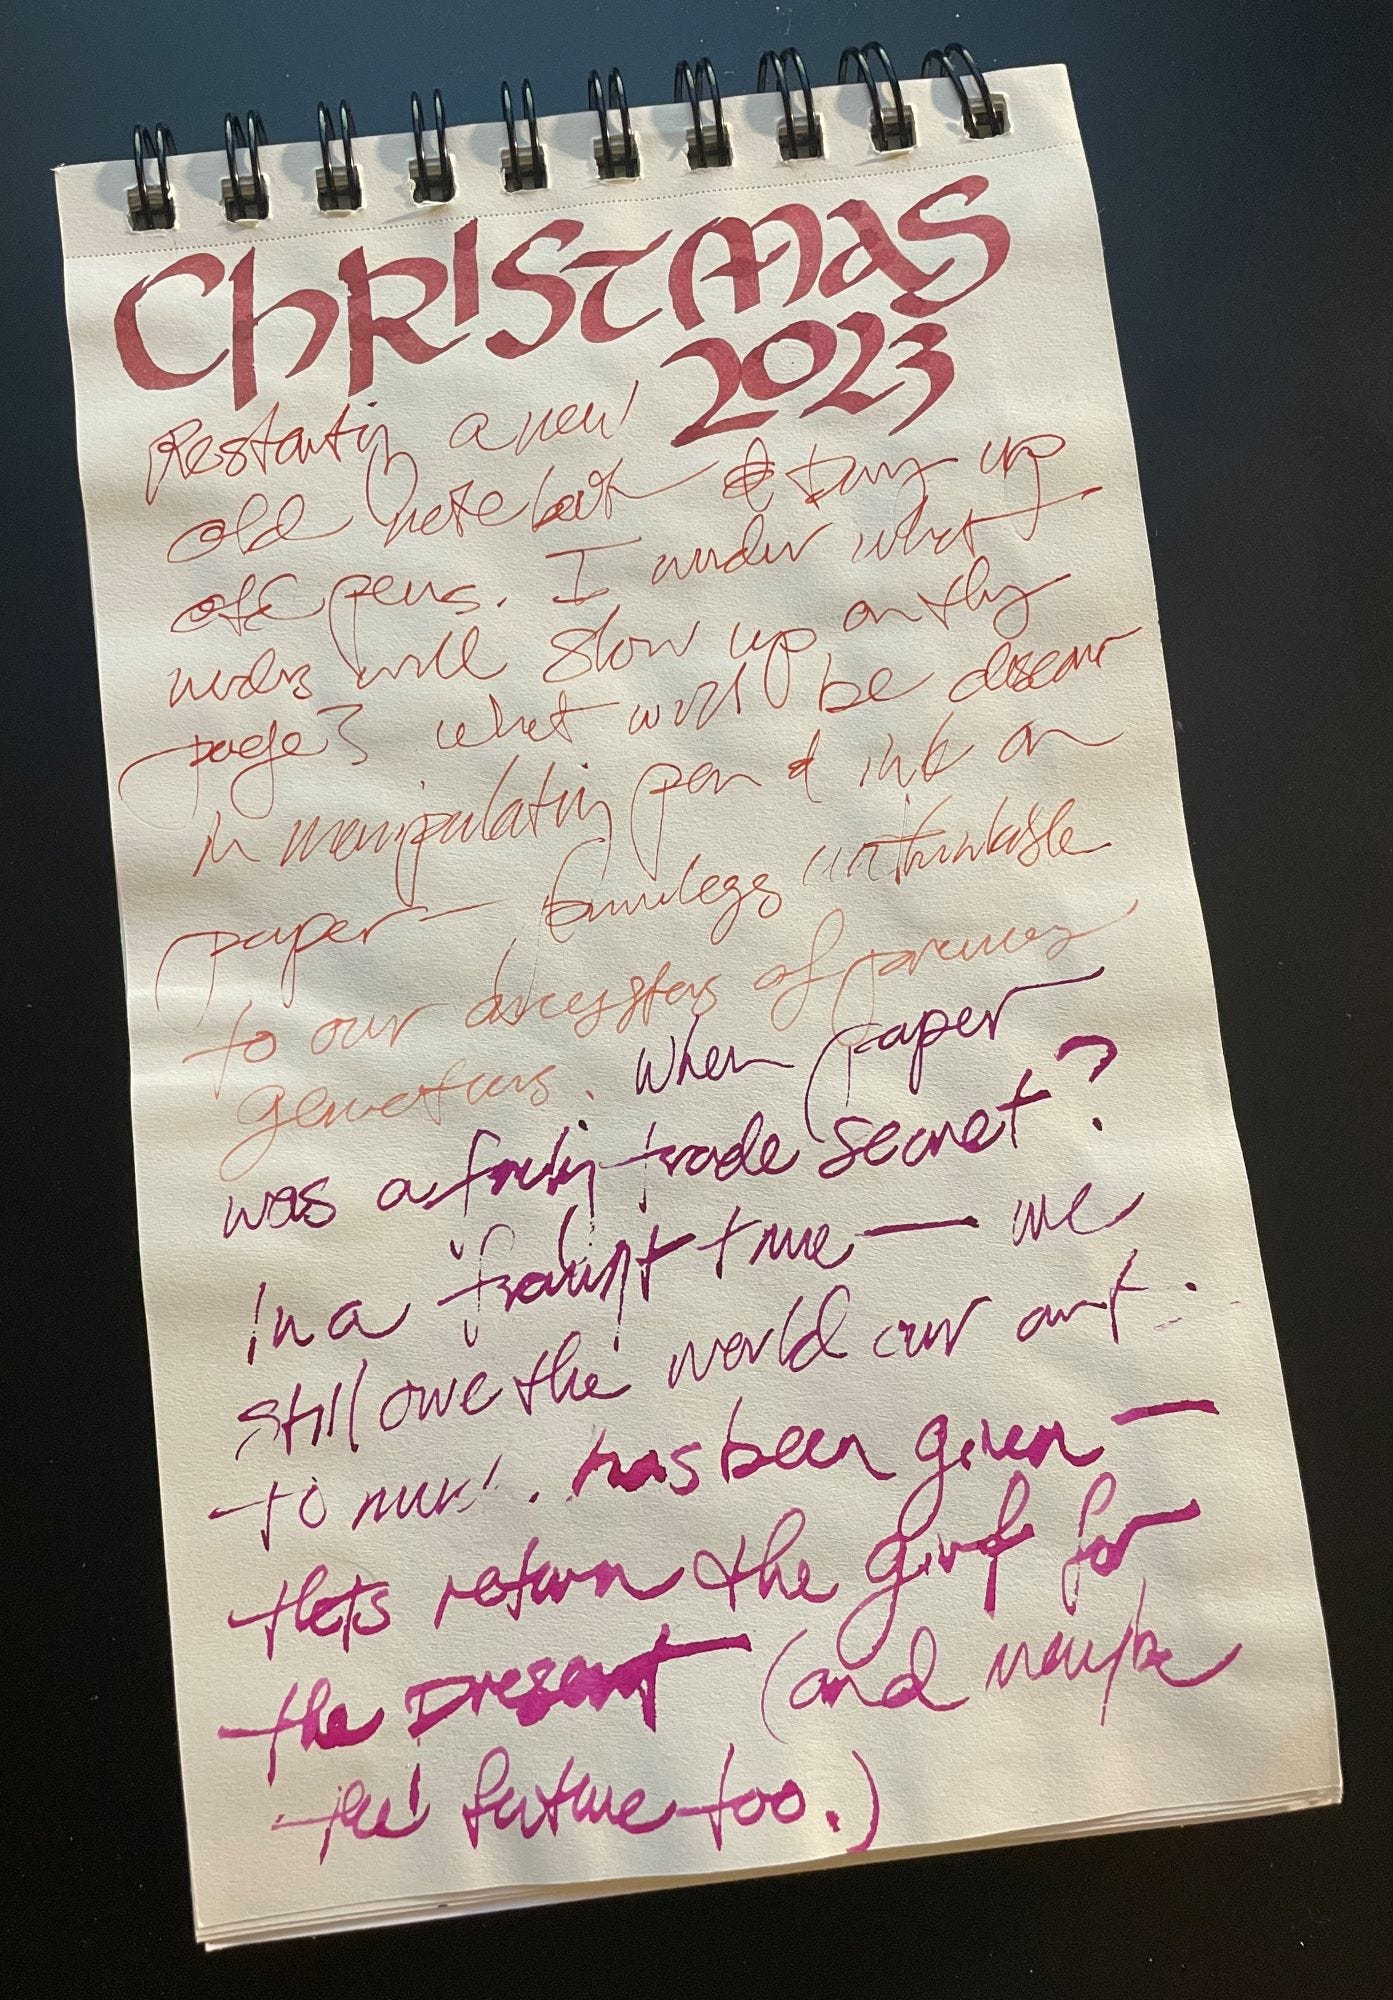 CHRISTMAS
2023
Restarting a new
old notebook & trying up
old pens. I wonder what
words will show up on this
page? what would be
in manipulating pen & ink on
paper — unthinkable
to our ancestors of previous
generations. When paper
was a trade secret?
In a time — we
still owe the world our
to . has been given —
lets return the gift for
the present (and maybe
the future too.)